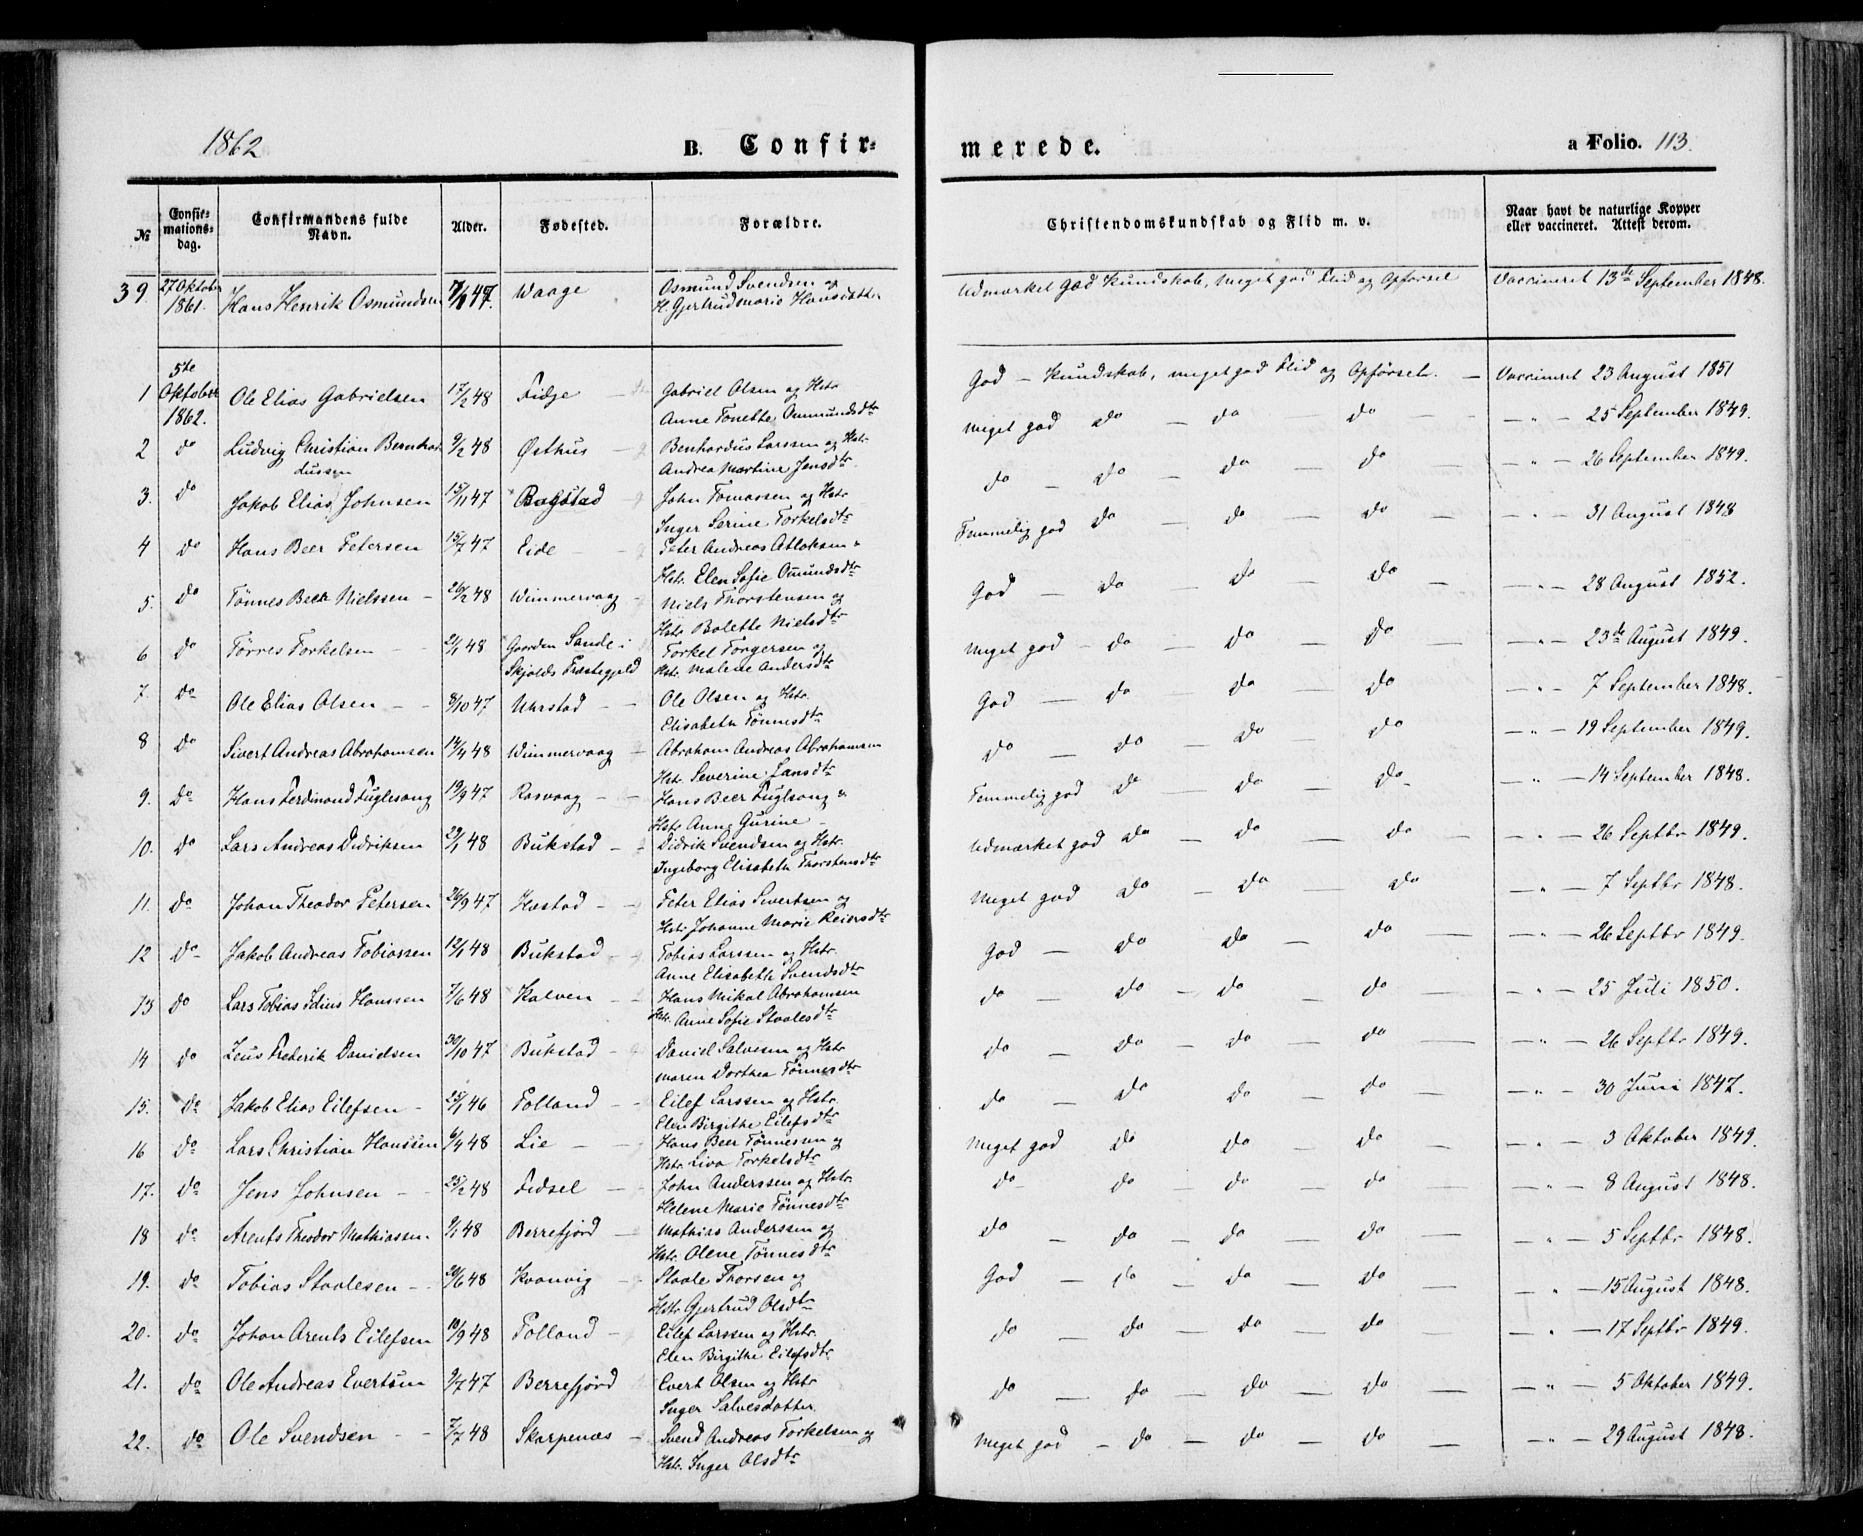 1862 B. Confirmerede. a Folio. 113.
№ Confirmationsdag. Confirmandens fulde Navn. Alder. Fødested. Forældre. Christendomskundskab og Flid m. v. Naar havt de naturlige Kopper eller vaccineret. Attest derom.
39 27 Oktober 1861. Hans Henrik Osmundsen 47. Waage Osmund Svendsen og H. Gjertrudmarie Hansdatter Udmærket God Kundskab, meget god Flid og Opførsel Vaccineret 13de September 1848.
1 5te Oktober 1862. Ole Elias Gabrielsen 17/2 48 Fidje Gabriel Olsen og Hstr Anne Tonette Osmundsdtr God – Kundskab, meget god Flid og Opførsel. – Vaccineret 23 August 1851
2 do Ludvig Christian Bernhardussen 9/2 48 Østhus Benhardus Larssen og Hstr. Andrea Martine Jensdtr. meget god do – do – do – " – 25 September 1849.
3. do Jakob Elias Johnsen 15/11 47 Bogstad John Tomassen og Hstr Inger Serine Torkelsdtr do – do – do – do – " – 26 September 1849.
4 do Hans Beer Petersen 15/7 47 Eide – Peter Andreas Atlaksen " Hstr. Elen Sofie Omundsdtr Temmelig god do – do – do – " – 31 August 1848
5. do Tønnes Beck Nielssen – 26/2 48 Wimmervaag – Niels Thorstensen og Hstr Bolette Nielsdtr God – do – do – do – " – 28 August 1852.
6 do Tørres Torkelsen – 24/1 48 Gaarden Sande i Skjolds Præstegjeld Torkel Torgersen og Hstr. Malene Andersdtr Meget god – do – do – do – " – 23de August 1849.
7. do Ole Elias Olsen – 8/10 47 Uhrstad – Ole Olsen og Hstr. Elisabeth Tønnesdtr God – do – do – do – " – 7 September 1848.
8 do Sivert Andreas Abrahamsen 14/4 48 Wimmervaag – Abraham Andreas Abrahamsen Hstr. Severine Jansdtr do – do – do – do – " – 19 September 1849.
9. do Hans Ferdinand Fuglesang 19/9 47 Rasvaag – Hans Beer Fuglsang " Hstr Anne Gurine – Temmelig god do – do – do – " – 14 September 1848.
10. do Lars Andreas Didriksen 29/1 48 Bukstad – Didrik Svendsen og Hstr. Ingeborg Elisabeth Thorstensdtr Udmærket god do – do – do – " – 26 Septbr 1849.
11. do Johan Theodor Petersen 26/9 47 Hæstad – Peter Elias Sivertsen og Hstr. Johanne Marie Reiersdtr Meget god do – do – do – " – 7 Septbr 1848.
12 do Jakob Andreas Tobiassen 12/1 48 Bukstad – Tobias Larssen og Hstr. Anne Elisabeth Svendsdtr God – do do – do – " – 26 Septbr 1849.
13 do Lars Tobias Hanssen 7/6 48 Kalven – Hans Mikal Abrahamsen Hstr. Anne Sofie Staalesdtr do – do – do – do – " – 25 Juli 1850.
14 do Zeus Frederik Danielsen 30/10 47 Bukstad – Daniel Salvesen og Hstr Maren Dorthea Tønnesdtr do – do – do – do – " – 26 Septbr 1849.
15. do Jakob Elias Eilefsen – 25/1 46 Tolland – Eilef Larssen og Hstr. Elen Birgithe Eilefsdtr do – do – do – do – " – 30 Juni 1847.
16 do Lars Christian Hanssen 6/4 48 Lie – Hans Beer Tønnesen og Hstr. Liva Torkelsdtr Meget god do – do – do – " – 3 Oktober 1849.
17. do Jens Johnsen – 25/2 48 Fidsel – John Anderssen og Hstr. Helene Marie Tønnesdtr do – do – do – do – " – 8 August 1848.
18 do Arents Theodor Mathiassen. 9/1 48 Berrefjord – Mathias Anderssen og Hstr. Olene Tønnesdtr do – do – do – do – " – 5 Septbr 1848.
19. do Tobias Staalesen – 20/6 48 Kvanvig – Staale Thorsen og Hstr Gjertrud Olsdtr God – do – do – do – " – 15 August 1848.
20. do Johan Arents Eilefsen 18/9 48 Tolland – Eilef Larssen og Hstr. Elen Birgithe Eilefsdtr do – do – do – do – " – 17 Septbr 1849.
21. do Ole Andreas Evertsen 9/7 47 Berrefjord Evert Olsen og Hstr Inger Salvesdatter do – do – do – do – " – 5 Oktober 1849.
22. do Ole Svendsen – 7/7 48 Skarpenæs – Svend Andreas Torkelsen og Hstr. Inger Olsdtr Meget god – do – do – do – " – 29 August 1848.